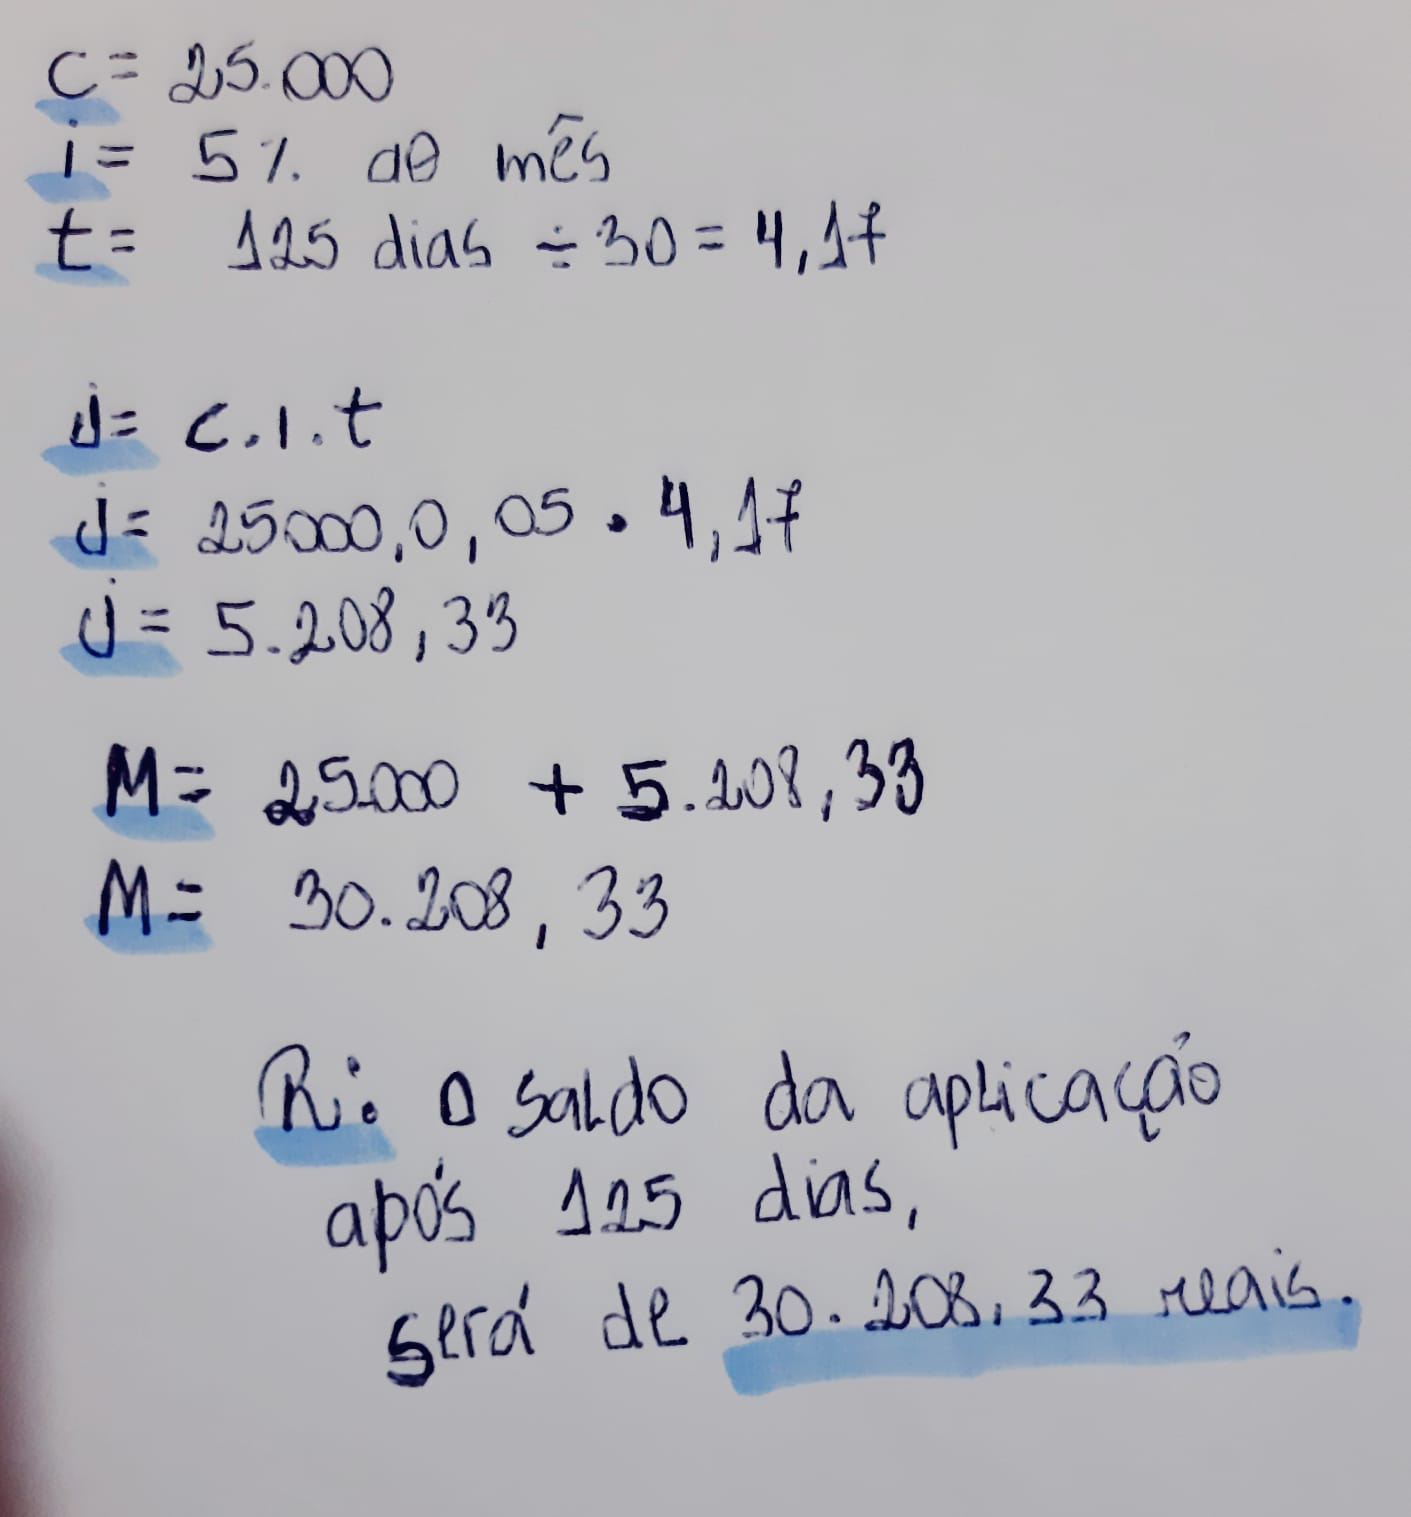 C= 25.000
i= 5% ao mês
t= 125 dias ÷ 30 = 4,17
J= C.i.t
J= 25000.0,05 . 4,17
J= 5.208,33
M= 25.000 + 5.208,33
M= 30.208,33
R: O saldo da aplicação
após 125 dias,
será de 30.208,33 reais.